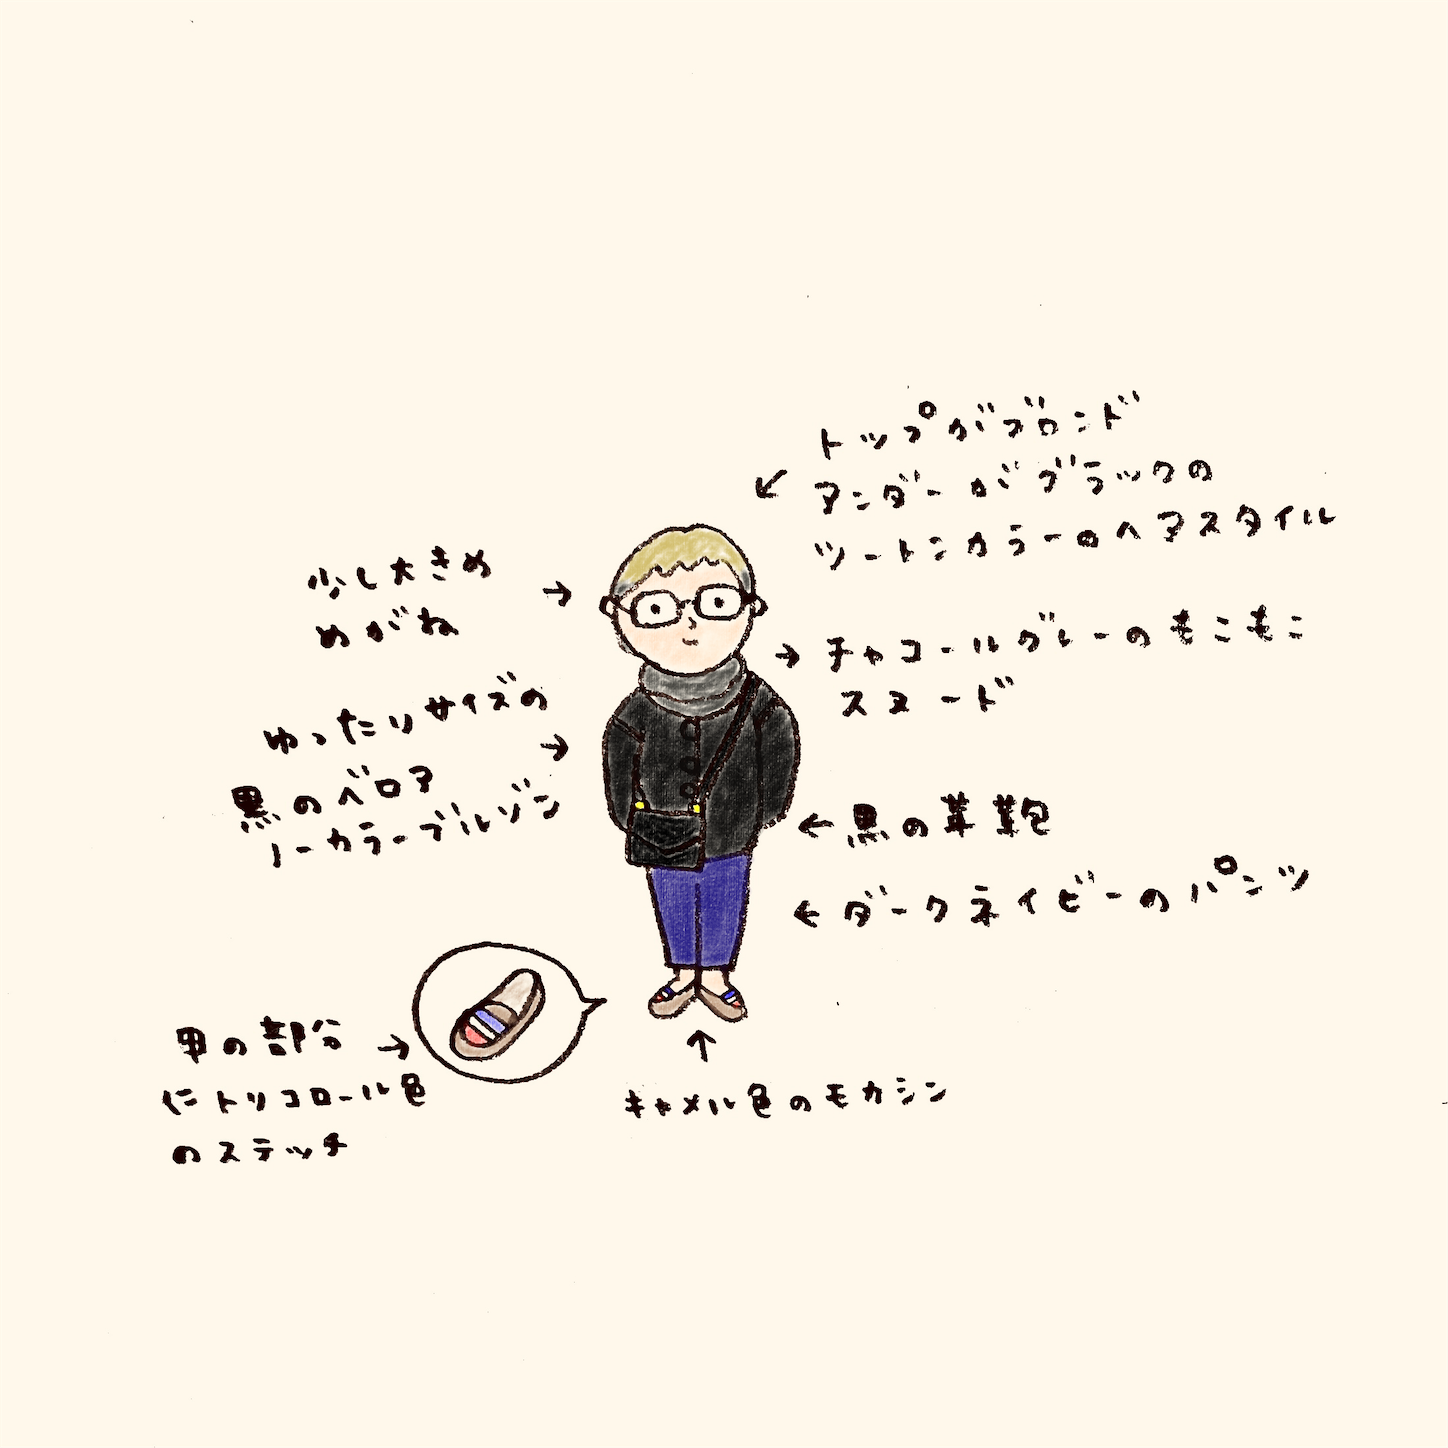 トップがブロンド
アンダーがブラックの
ツートンカラーのヘアスタイル
少し大きめ
めがね
チャコールグレーのもこもこ
スヌード
ゆったりサイズの
黒のベロア
ノーカラーブルゾン
黒の革鞄
ダークネイビーのパンツ
甲の部分
にトリコロール色
のステッチ
キャメル色のモカシン